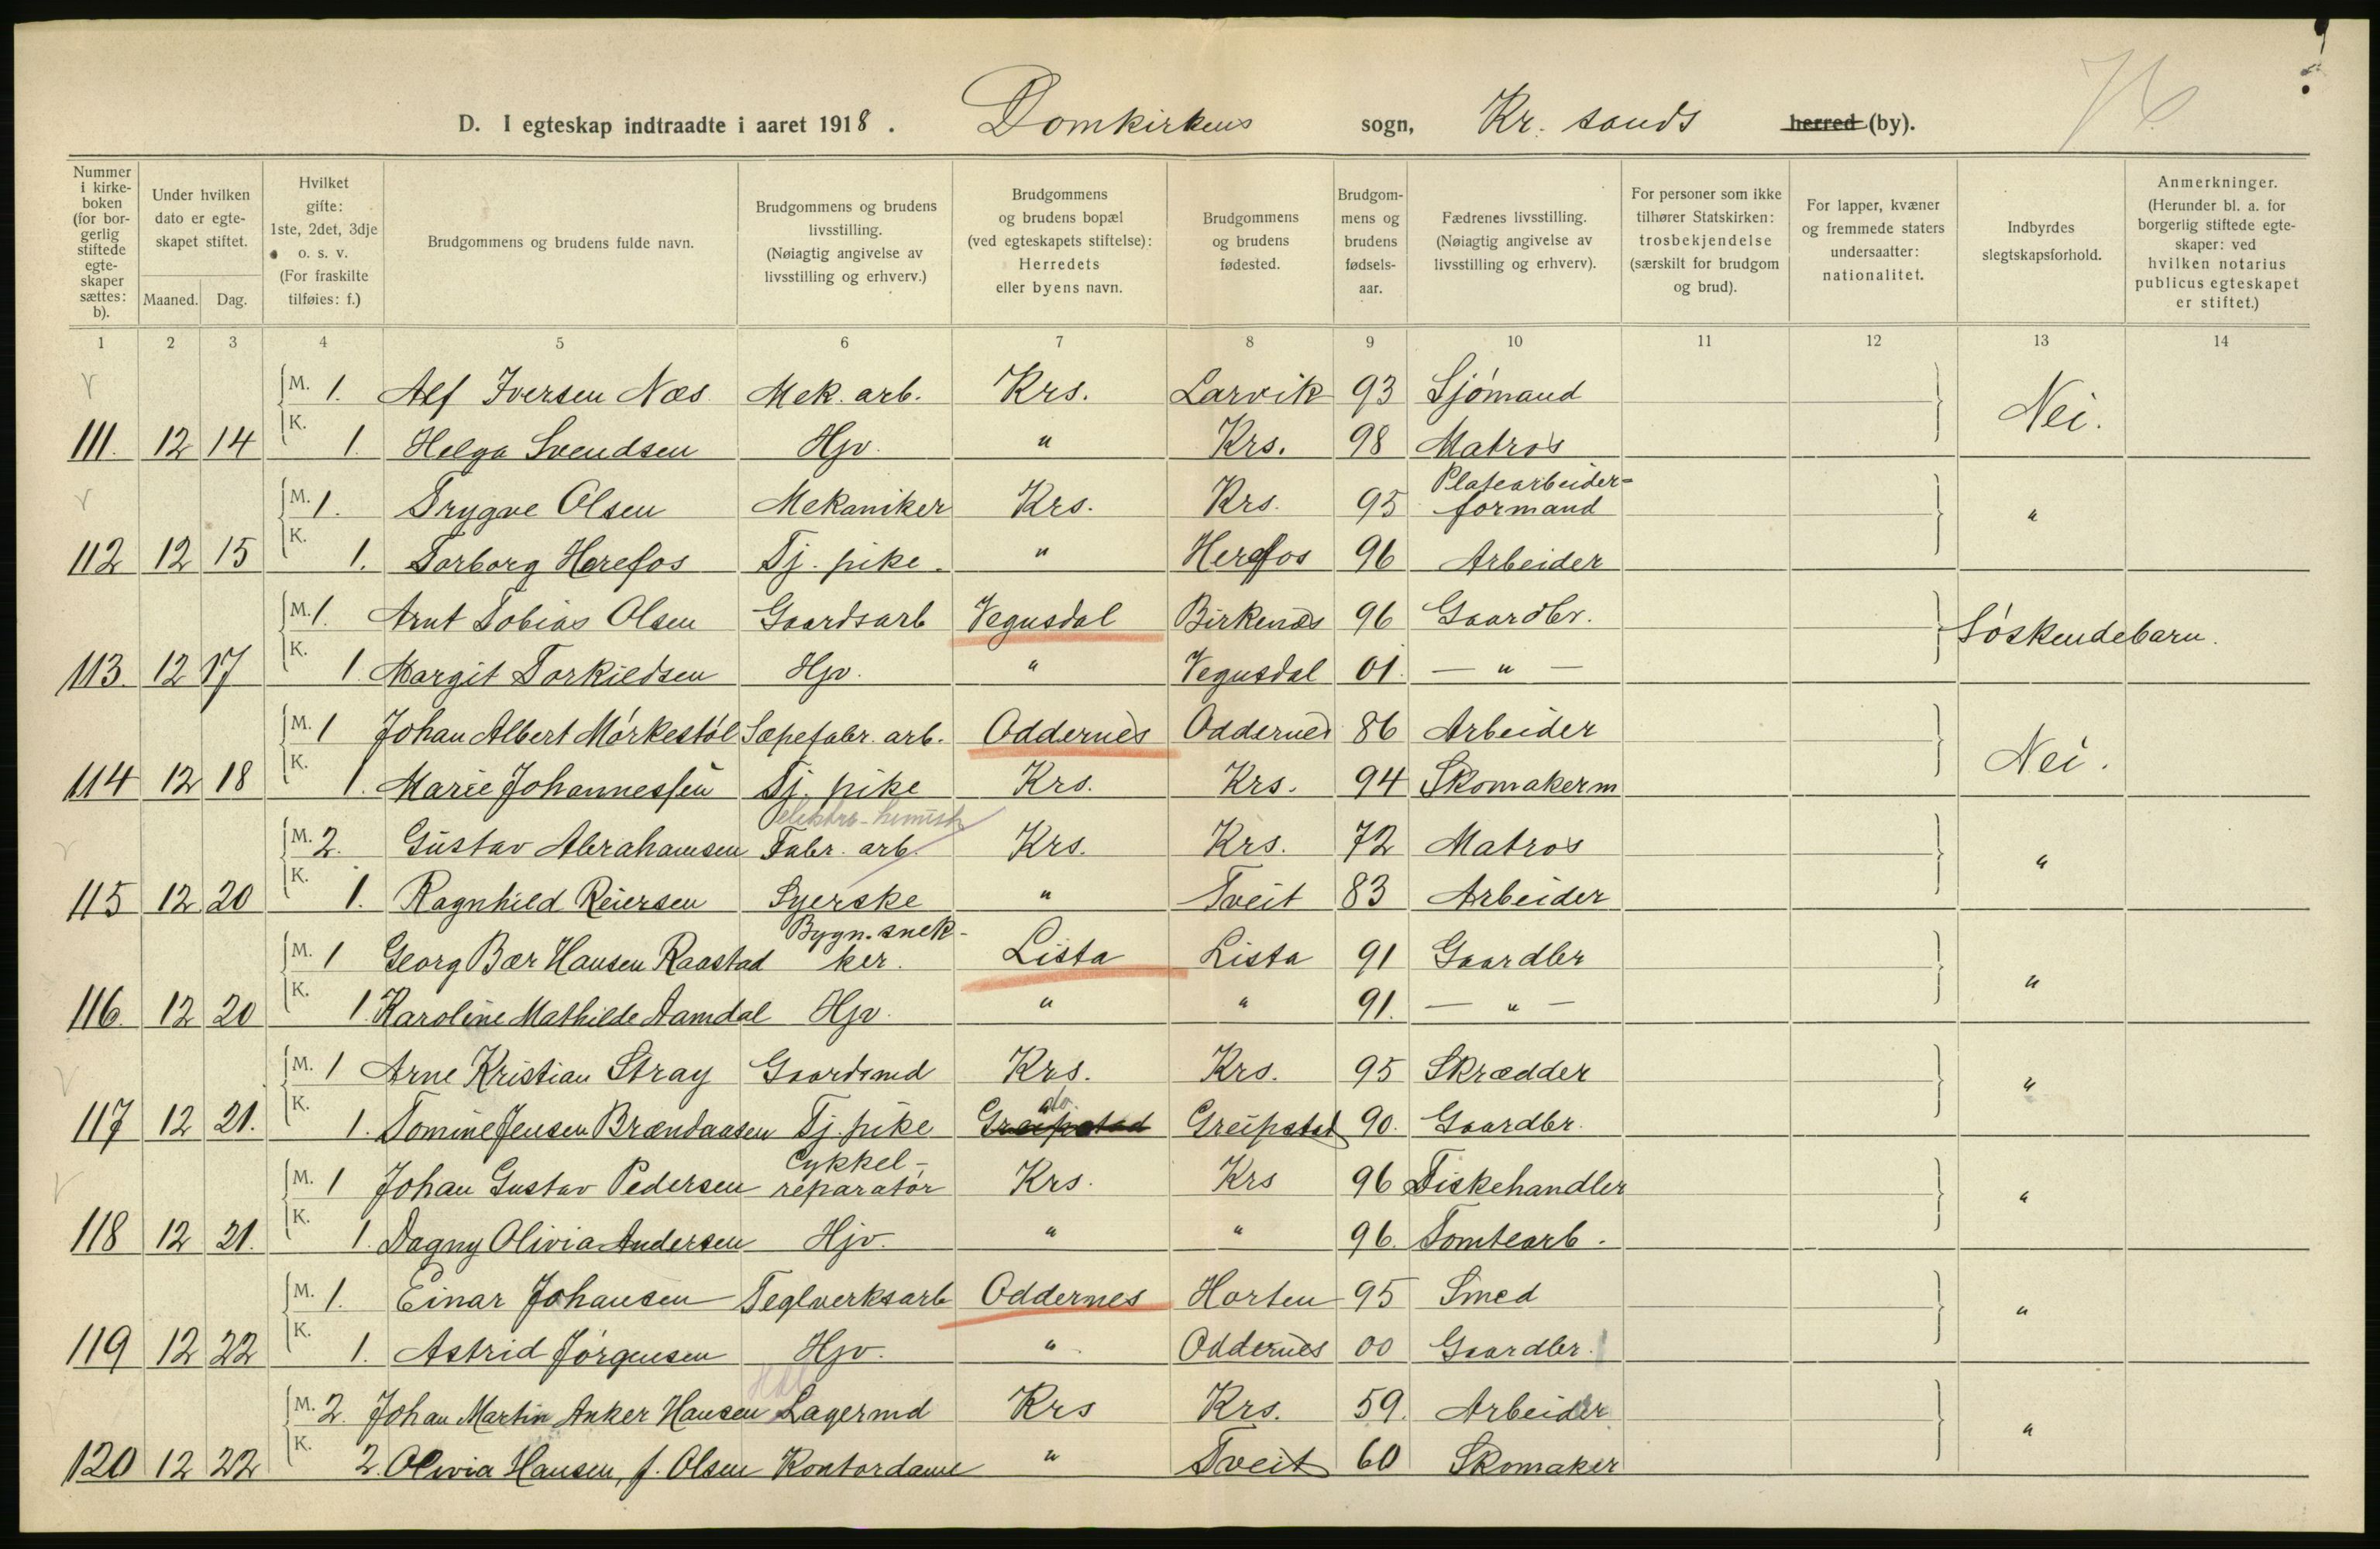 D. I egteskap indtraadte i aaret 1918. Domkirkens sogn, Kr. sands herred (by).
Nummer i kirkeboken (for borgerlig stiftede egteskaper sættes: b).
Under hvilken dato er egteskapet stiftet.
Maaned. Dag.
Hvilket gifte: 1ste, 2det, 3dje o. s. v. (For fraskilte tilføies: f.)
Brudgommens og brudens fulde navn.
Brudgommens og brudens livsstilling. (Nøiagtig angivelse av livsstilling og erhverv.)
Brudgommens og brudens bopæl (ved egteskapets stiftelse): Herredets eller byens navn.
Brudgommens og brudens fødested.
Brudgommens og brudens fødselsaar.
Fædrenes livsstilling. (Nøiagtig angivelse av livsstilling og erhverv).
For personer som ikke tilhører Statskirken: trosbekjendelse (særskilt for brudgom og brud).
For lapper, kvæner og fremmede staters undersaatter: nationalitet.
Indbyrdes slegtskapsforhold.
Anmerkninger. (Herunder bl. a. for borgerlig stiftede egteskaper: ved hvilken notarius publicus egteskapet er stiftet.)
1 2 3 4 5 6 7 8 9 10 11 12 13 14
M. 1. Alf Iversen Næs Mek. arb. Krs. Larvik 93 Sjømand Nei.
111. 12 14 K. 1. Helga Svendsen Hjv. " Krs. 98 Matros
M. 1. Trygve Olsen Mekaniker Krs. Krs. 95 Platearbeider-formand "
112 12 15 K. 1. Torborg Herefos Tj. pike. " Herefos 96 Arbeider
M. 1. Arnt Tobias Olsen Gaardsarb Vegusdal Birkenæs 96 Gaardbr. Søskendebarn.
113. 12 17 K. 1. Margit Torkildsen Hjv. " Vegusdal 01. — " —
M. 1 Johan Albert Mørkestøl Sæpefabr. arb. Oddernes Oddernes 86 Arbeider Nei.
114 12 18 K. 1. Marie Johannessen Tj. pike Krs. Krs. 94 Skomakerm
elektro-kemisk
M. 2. Gustav Abrahamsen Fabr. arb. Krs. Krs. 72 Matros "
115 12 20 K. 1. Ragnhild Reiersen Syerske " Tveit 83 Arbeider
M. 1 Georg Bær Hansen Raastad Bygn. snek-ker. Lista Lista 91 Gaardbr "
116. 12 20 K. 1. Karoline Mathilde Aamdal Hjv. " " 91. — " —
M. 1 Arne Kristian Stray Gaardsmd Krs. Krs. 95 Skrædder "
117 12 21. K. 1. Tomine Jensen Brændaasen Tj. pike Greipstad do. Greipstad 90. Gaardbr.
M. 1 Johan Gustav Pedersen Cykkel-reparatør Krs. Krs 96 Fiskehandler "
118 12 21. K. 1. Dagny Olivia Andersen Hjv. " " 96. Tomtearb.
M. 1. Einar Johansen Teglverksarb Oddernes Horten 95 Smed "
119 12 22 K. 1. Astrid Jørgensen Hjv. " Oddernes 00 Gaardbr.
M. 2. Johan Martin Anker Hansen Lagermd Krs Krs. 59. Arbeider "
120 12 22 K. 2. Olivia Hansen, f. Olsen Kontordame " Tveit 60 Skomaker